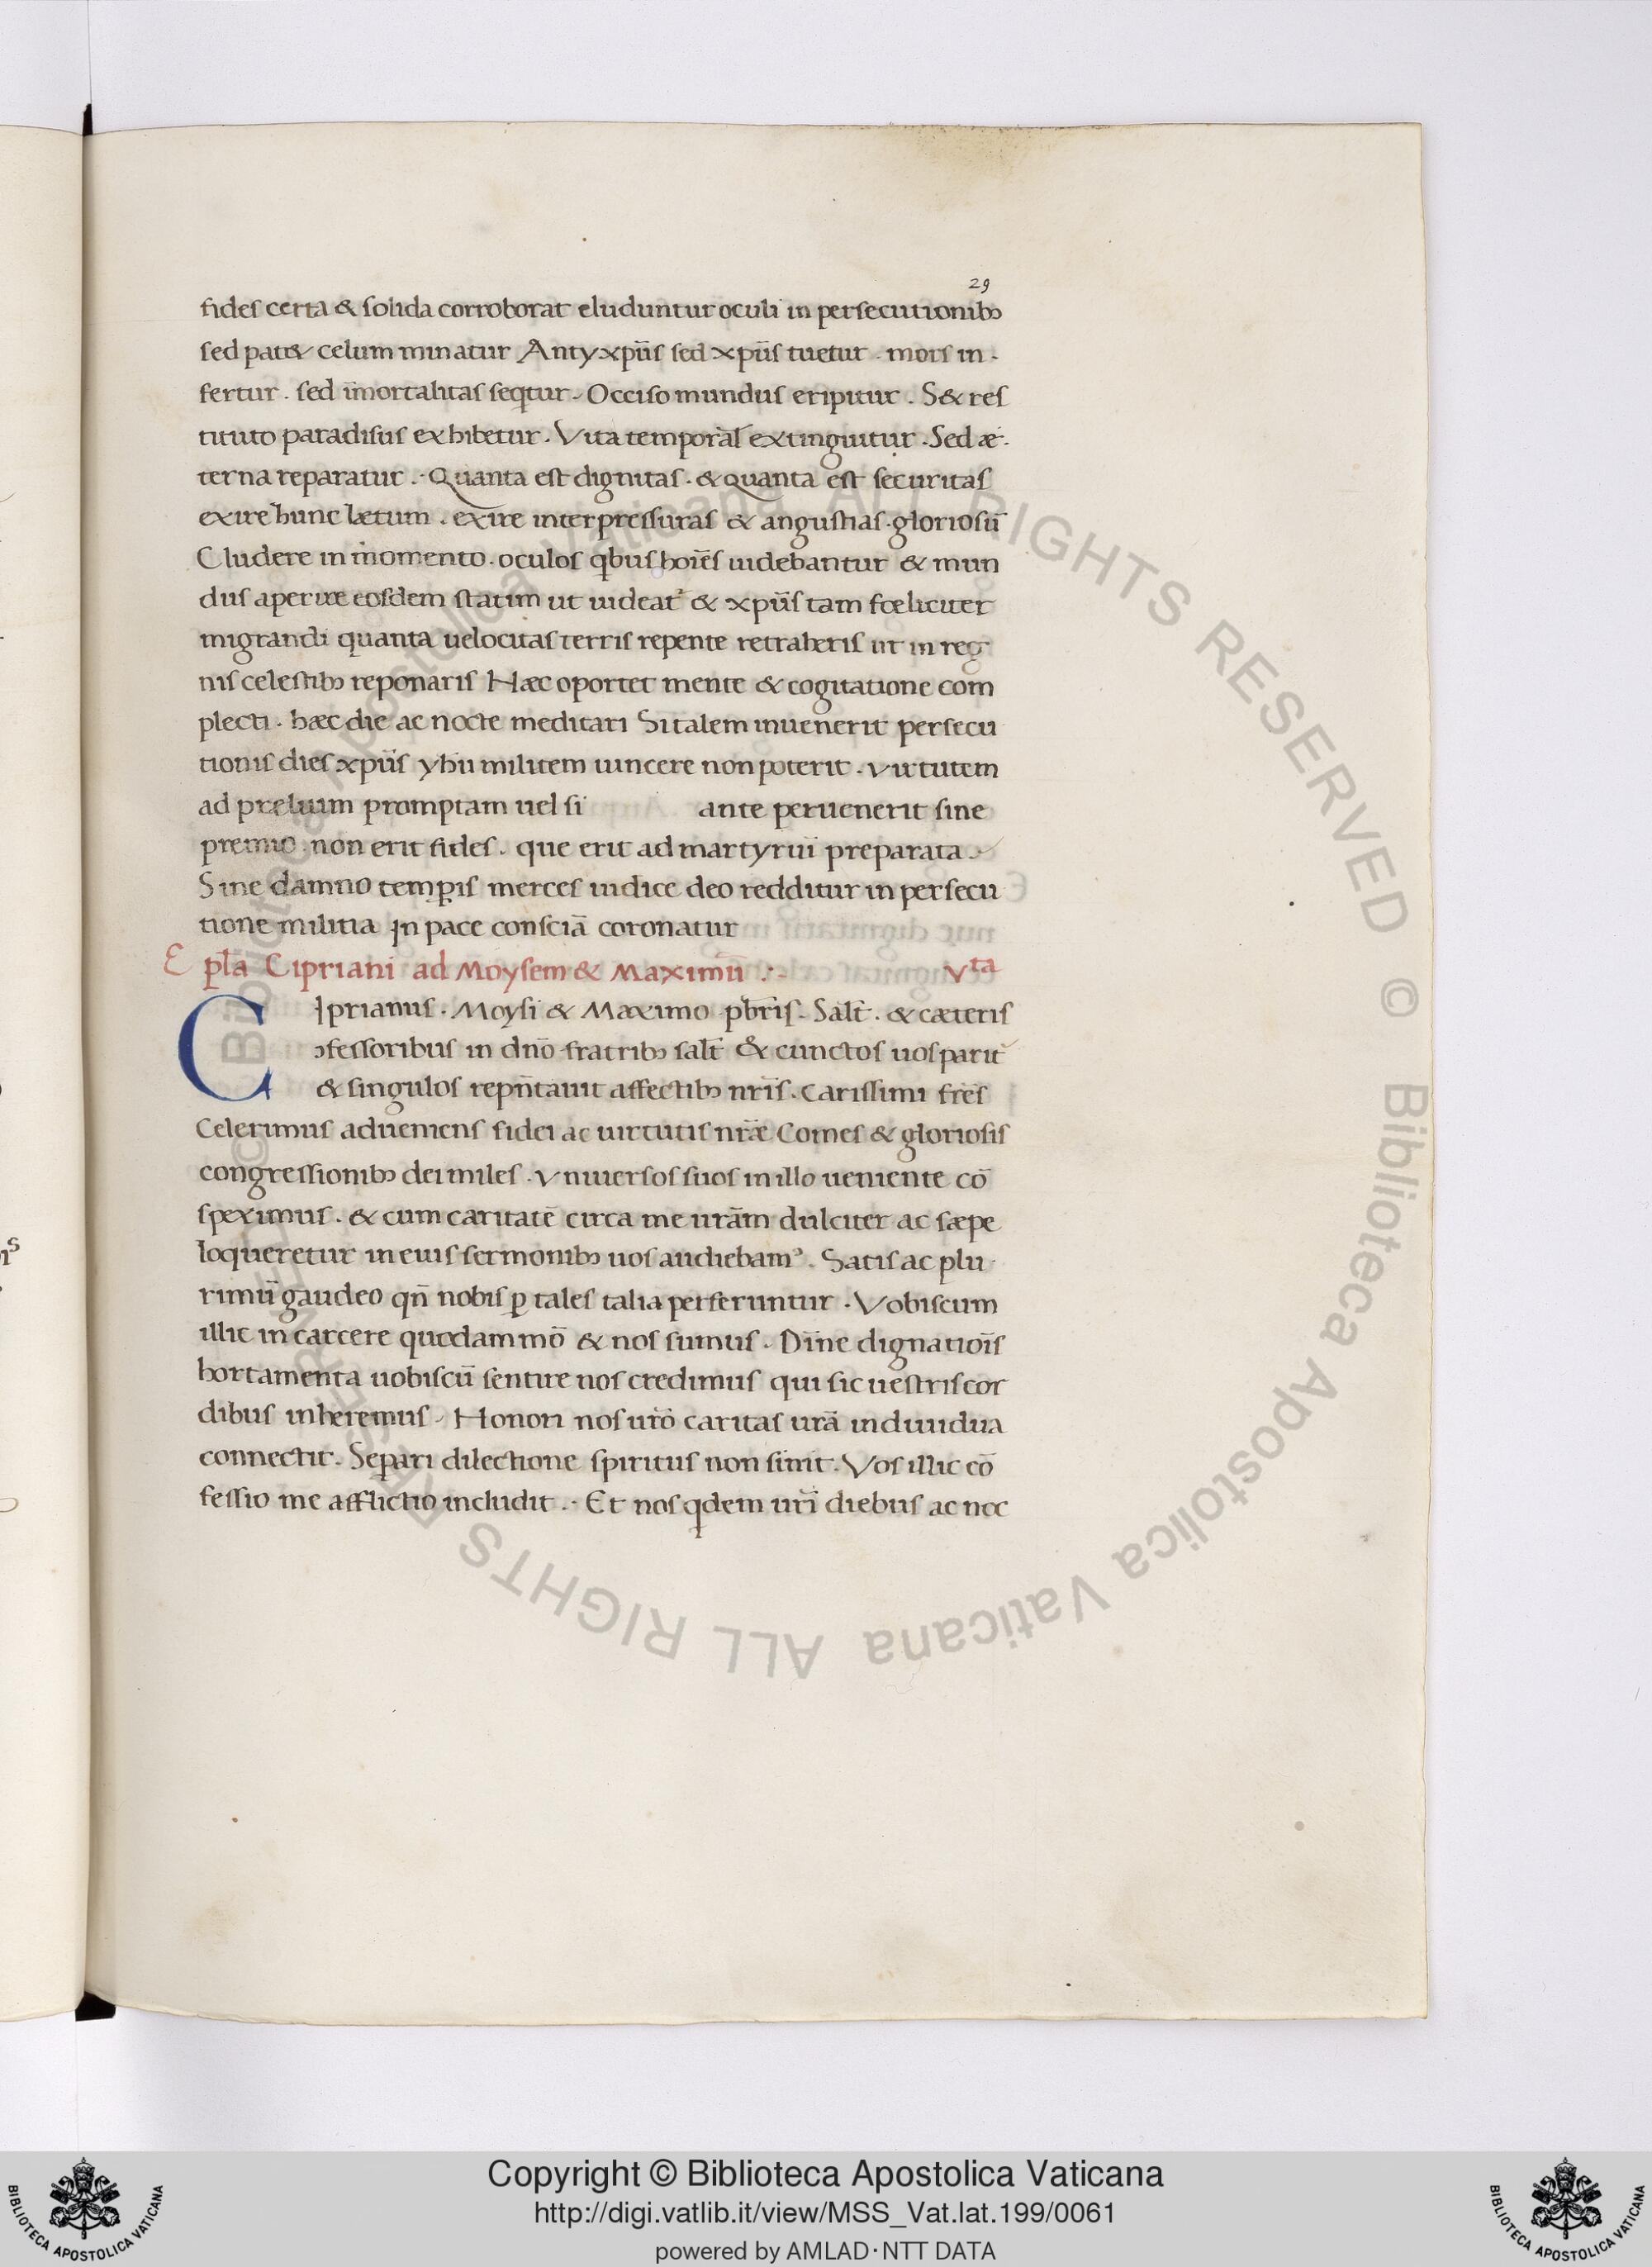 29
fides certa & solida corroborat eluduntur oculi in persecutionibꝫ
sed pat& celum minatur Antyxpūs sed xpūs tuetur . mors in-
fertur . sed īmortalitas seqtur . Occiso mundus eripitur . S& res
tituto paradisus exhibetur . Vita temporal extinguitur . Sed æ-
terna reparatur . Quanta est dignitas . & quanta est securitas
exire hunc lætum . exire inter pressuras & angustias . gloriosū
Cludere in momento . oculos qbus hoīes uidebantur & mun
dus aperire eosdem statim ut uideat² & xpūs tam fœliciter
migrandi quanta uelocitas terris repente retraheris ut in reg
nis celestibꝫ reponaris Hæc oportet mente & cogitatione com
plecti . hæc die ac nocte meditari Si talem inuenerit persecu
tionis dies xpūs yhū militem uincere non poterit . Virtutem
ad preluim promptam uel si ante peruenerit sine
premio non erit fides . que erit ad martyriū preparata .
Sine damno tempꝑis merces iudice deo redditur in persecu
tione militia In pace consciā coronatur
Epl̄a Cipriani ad Moysem & Maximū . Vta
CIprianus . Moysi & Maximo pbr̄is . Salt̄ . & cæteris
ↄfessoribus in dn̄o fratribꝫ salt̄ & cunctos uos parit
& singulos repn̄tauit affectibꝫ nr̄is . Carissimi frēs
Celerimus adueniens fidei ac uirtutis nr̄æ Comes & gloriosis
congressionibꝫ dei miles . Vniuersos suos in illo ueniente cō
speximus . & cum caritatē circa me urām dulciter ac sæpe
loqueretur in euis sermonibꝫ uos audiebam⁹ . Satis ac plu
rimū gaudeo qn̄ nobis ꝑ tales talia perferuntur . Vobiscum
illic in carcere quodammō & nos sumus . Dīne dignatioīs
hortamenta uobiscū sentire nos credimus qui sic uestris cor
dibus inheremus . Honori nos urō caritas urā indiuidua
connectit . Separi dilectione spiritus non sinit . Vos illic cō
fessio me afflictio includit . Et nos qdem urī diebus ac noc
© Biblioteca Apostolica Vaticana ALL RIGHTS RESERVED © Biblioteca Apostolica Vaticana ALL RIGHTS RESERVED
Copyright © Biblioteca Apostolica Vaticana
http://digi.vatlib.it/view/MSS_Vat.lat.199/0061
powered by AMLAD·NTT DATA
BIBLIOTECA APOSTOLICA VATICANA
BIBLIOTECA APOSTOLICA VATICANA